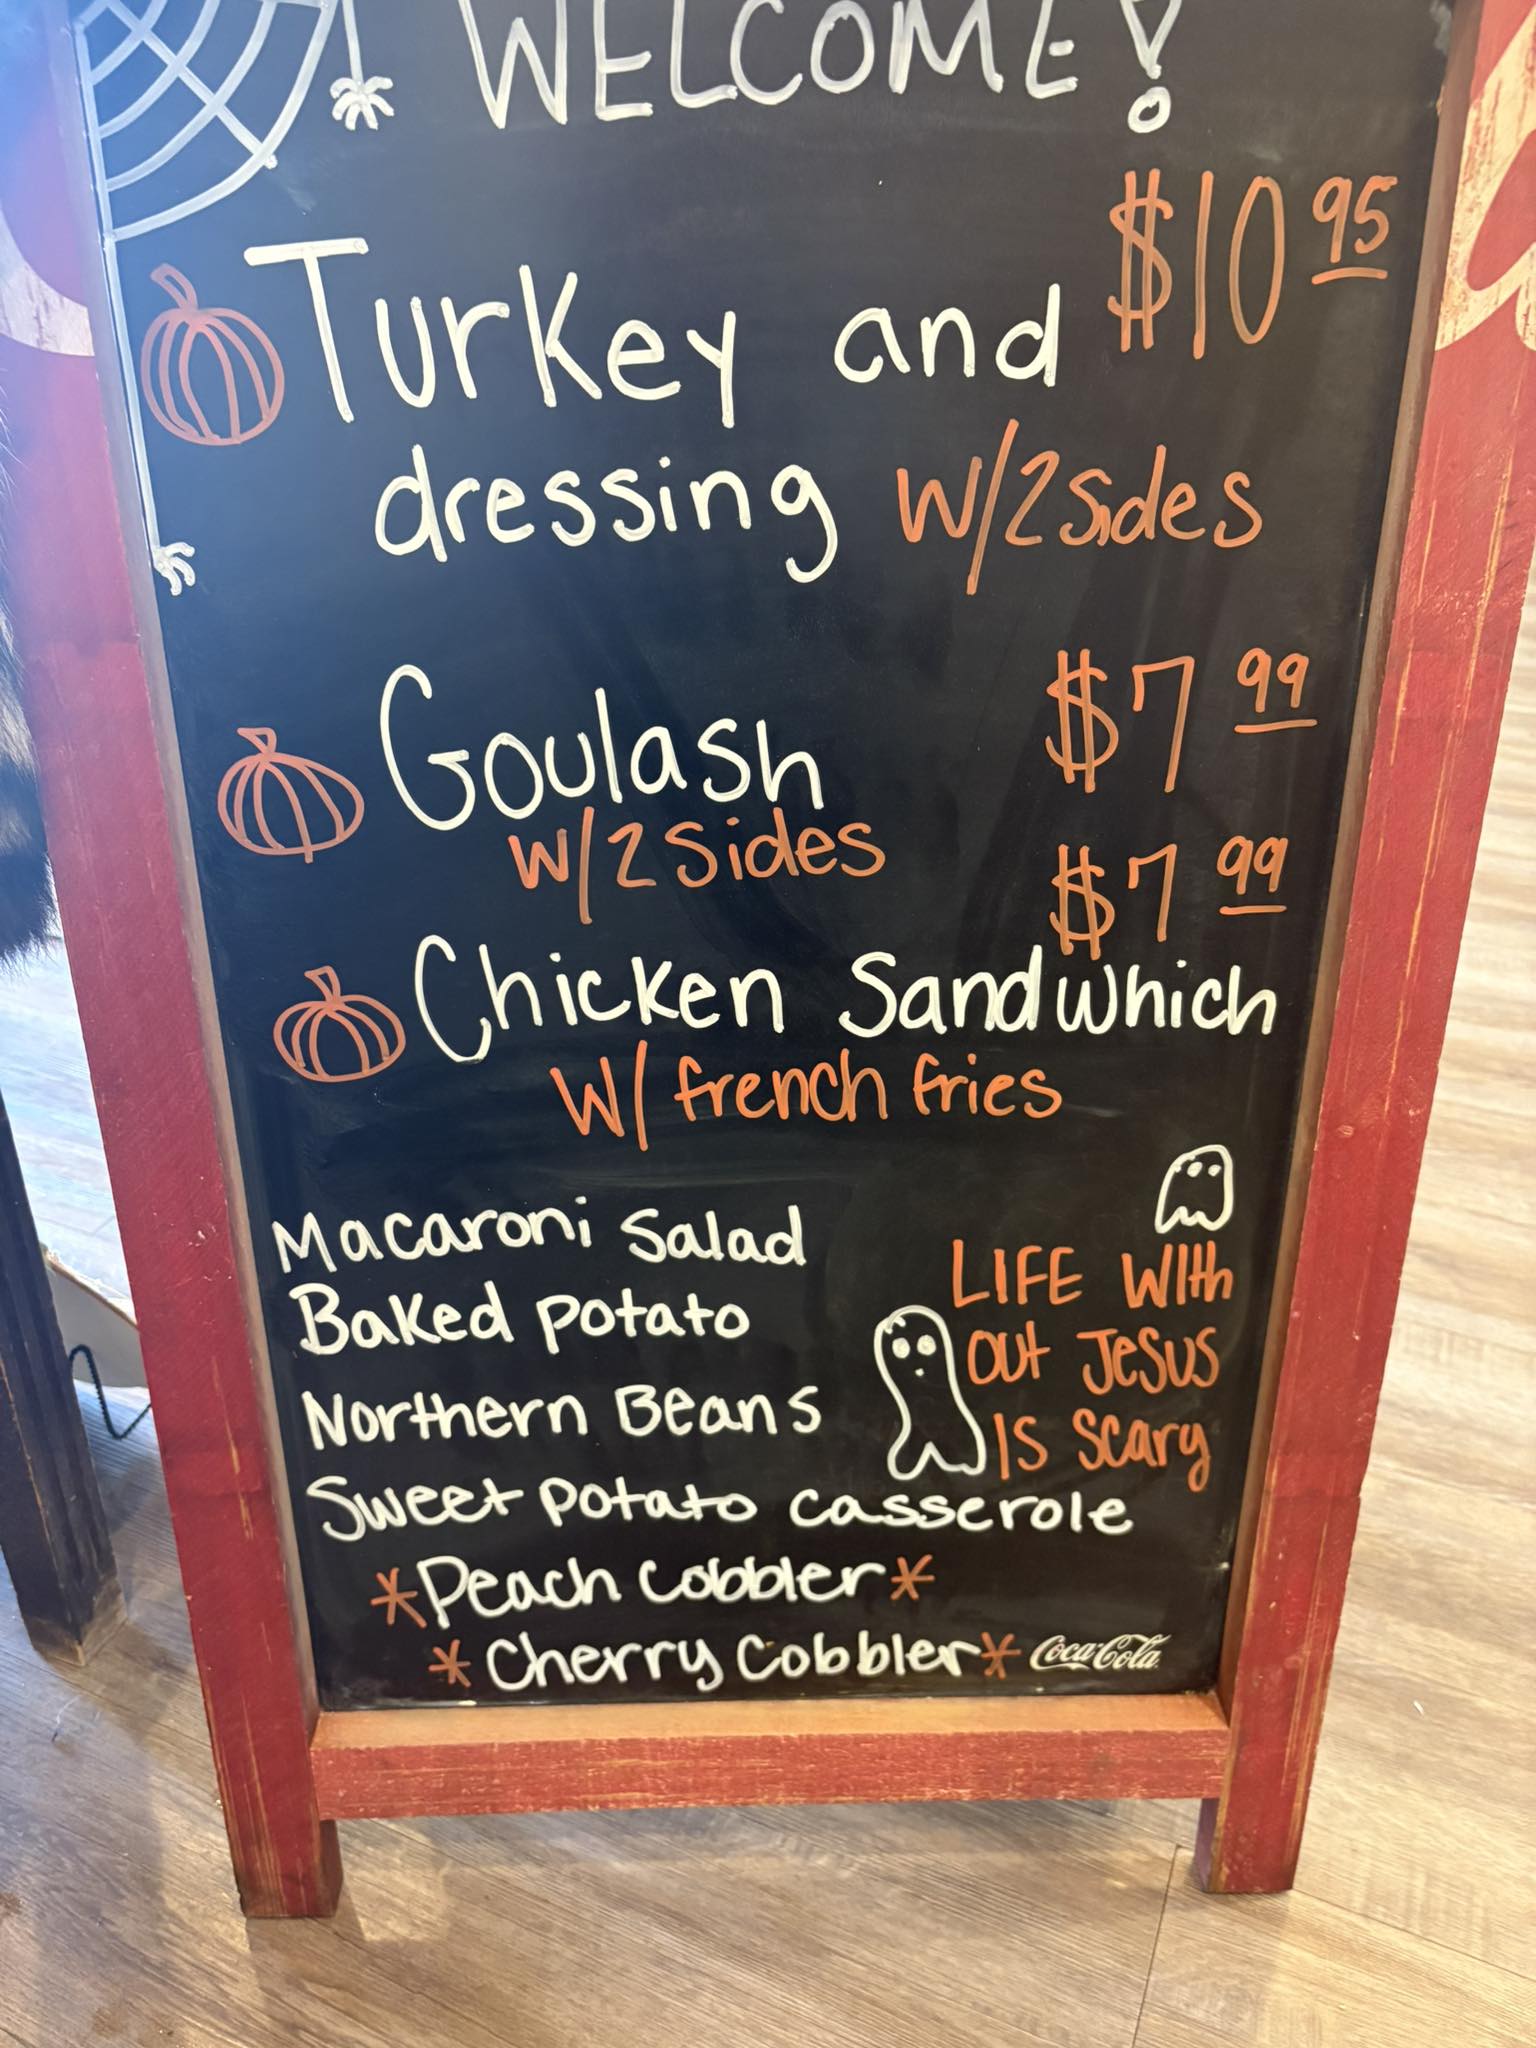 WELCOME!
$10 95
Turkey and
dressing w/2 sides
$7 99
Goulash
w/2 sides
$7 99
Chicken Sandwhich
w/ french fries
Macaroni Salad
Baked potato
Northern Beans
Sweet potato casserole
LIFE WIth
out Jesus
Is scary
*Peach Cobbler*
*Cherry Cobbler*
Coca-Cola